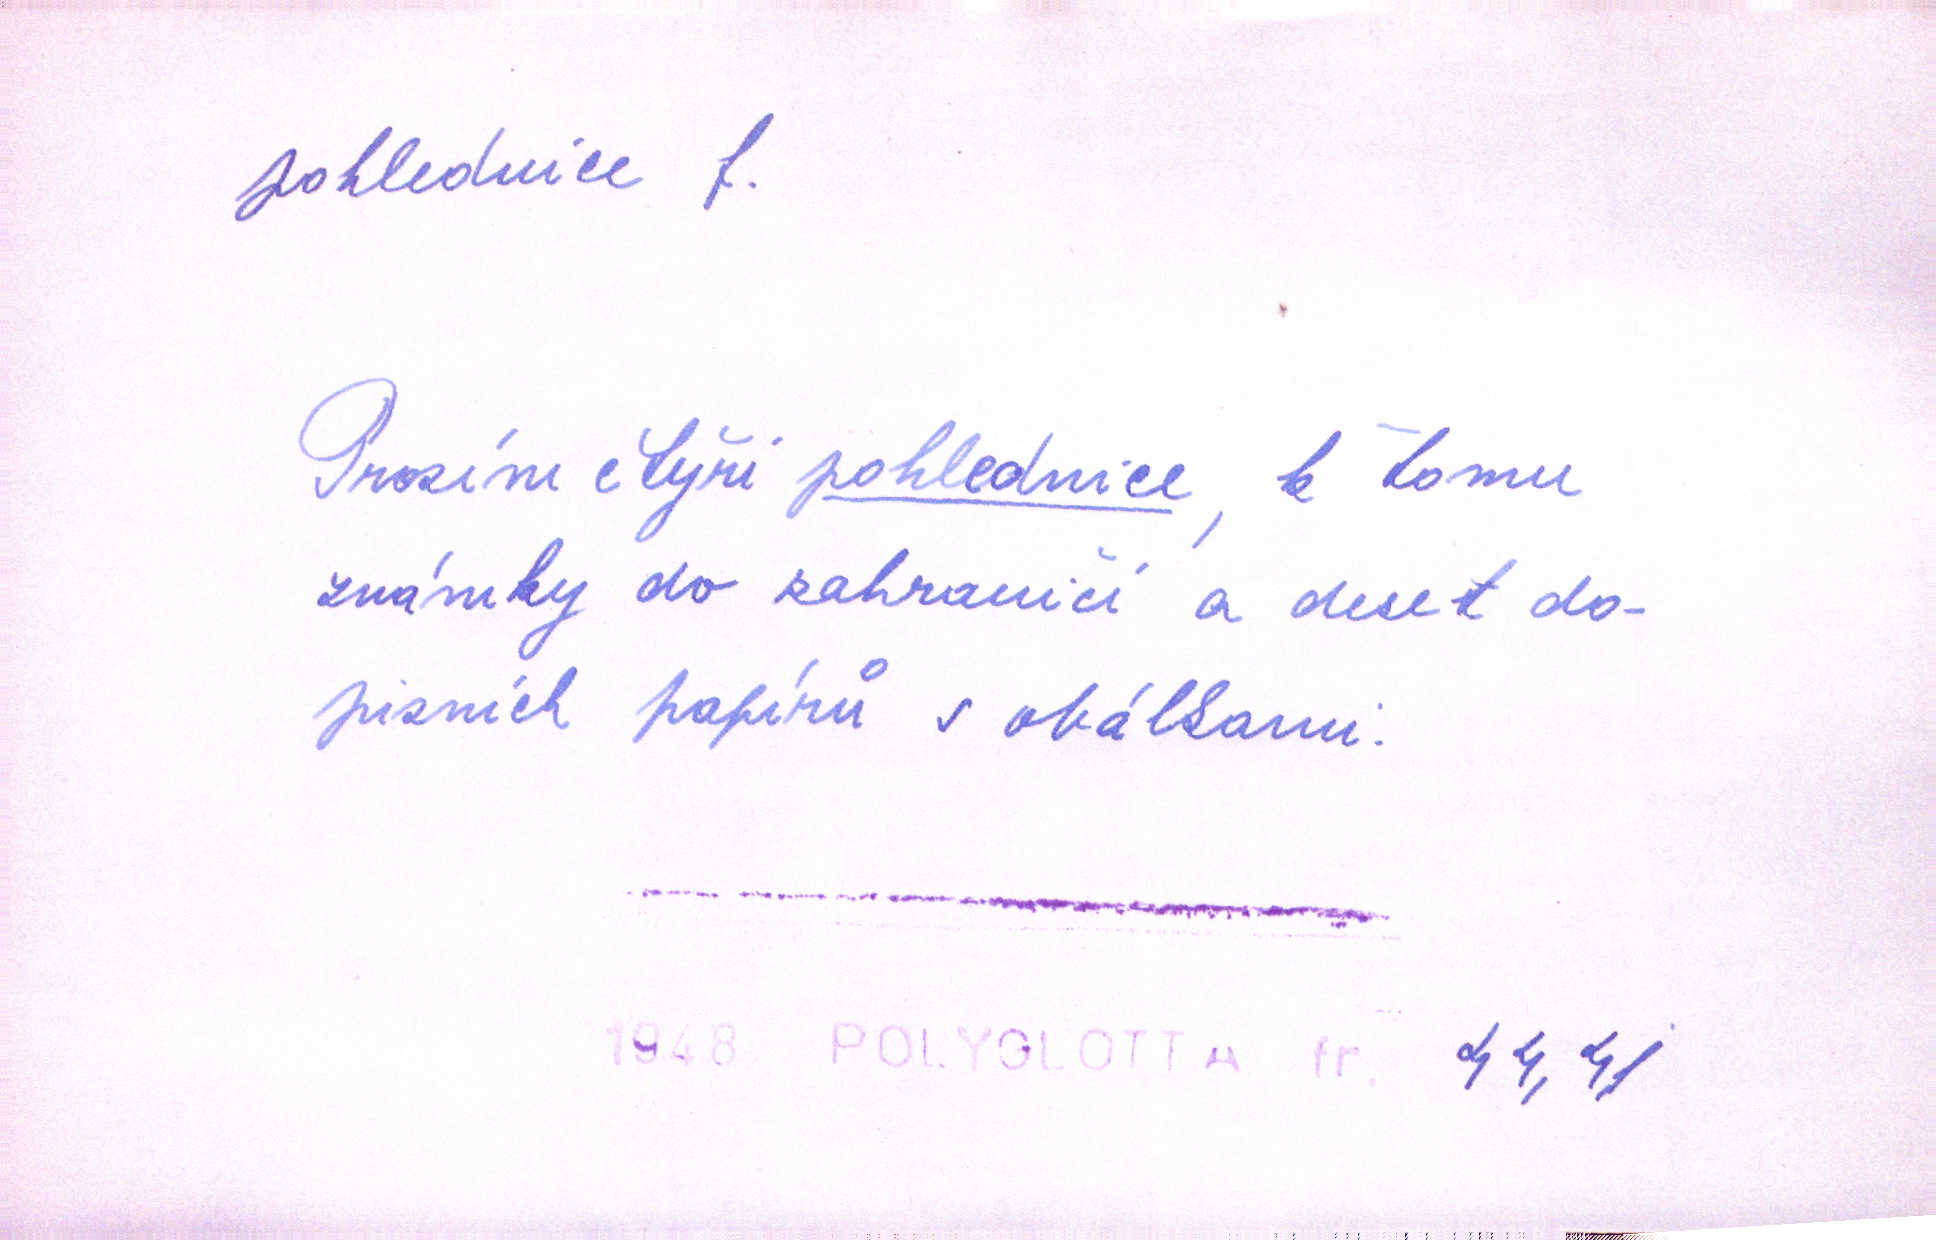 pohlednice f.
Prosím čtyři pohlednice, k tomu
známky do zahraničí a deset do-
pisních papírů s obálkami.
1948 POLYGLOTTA fr.